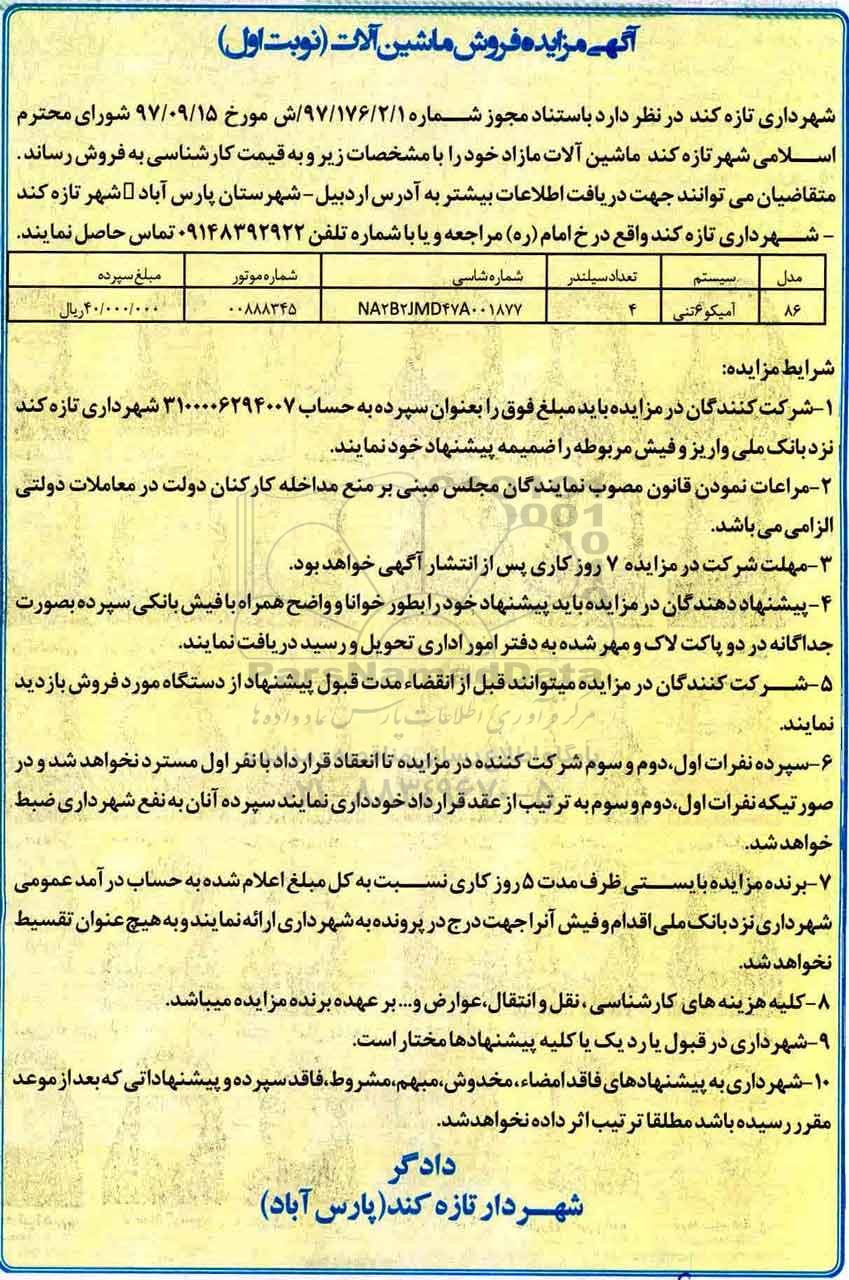 آگهی مزایده فروش ماشین آلات (نوبت اول)
شهرداری تازه کند در نظر دارد باستناد مجوز شماره ۹۷/۱۷۶/۲/۱/ش مورخ ۹۷/۰۹/۱۵ شورای محترم
اسلامی شهر تازه کند ماشین آلات مازاد خود را با مشخصات زیر و به قیمت کارشناسی به فروش رساند.
متقاضیان می توانند جهت دریافت اطلاعات بیشتر به آدرس اردبیل - شهرستان پارس آباد شهر تازه کند
- شهرداری تازه کند واقع در خ امام (ره) مراجعه و یا با شماره تلفن ۰۹۱۴۸۳۹۲۹۲۲ تماس حاصل نمایند.
مدل سیستم تعداد سیلندر شماره شاسی شماره موتور مبلغ سپرده
۸۶ آمیکو ۶تنی ۴ NA۲B۲JMD۴۷A۰۰۱۸۷۷ ۰۰۸۸۸۳۴۵ ۴۰/۰۰۰/۰۰۰ریال
شرایط مزایده:
۱-شرکت کنندگان در مزایده باید مبلغ فوق را بعنوان سپرده به حساب ۳۱۰۰۰۰۶۲۹۴۰۰۷ شهرداری تازه کند
نزد بانک ملی واریز و فیش مربوطه را ضمیمه پیشنهاد خود نمایند.
۲-مراعات نمودن قانون مصوب نمایندگان مجلس مبنی بر منع مداخله کارکنان دولت در معاملات دولتی
الزامی می باشد.
۳-مهلت شرکت در مزایده ۷ روز کاری پس از انتشار آگهی خواهد بود.
۴-پیشنهاد دهندگان در مزایده باید پیشنهاد خود را بطور خوانا و واضح همراه با فیش بانکی سپرده بصورت
جداگانه در دو پاکت لاک و مهر شده به دفتر امور اداری تحویل و رسید دریافت نمایند.
۵-شرکت کنندگان در مزایده میتوانند قبل از انقضاء مدت قبول پیشنهاد از دستگاه مورد فروش بازدید
نمایند.
۶-سپرده نفرات اول،دوم و سوم شرکت کننده در مزایده تا انعقاد قرارداد با نفر اول مسترد نخواهد شد و در
صورتیکه نفرات اول،دوم و سوم به ترتیب از عقد قرارداد خودداری نمایند سپرده آنان به نفع شهرداری ضبط
خواهد شد.
۷-برنده مزایده بایستی ظرف مدت ۵ روز کاری نسبت به کل مبلغ اعلام شده به حساب درآمد عمومی
شهرداری نزد بانک ملی اقدام و فیش آنرا جهت درج در پرونده به شهرداری ارائه نمایند و به هیچ عنوان تقسیط
نخواهد شد.
۸-کلیه هزینه های کارشناسی ، نقل و انتقال،عوارض و... بر عهده برنده مزایده میباشد.
۹-شهرداری در قبول یا رد یک یا کلیه پیشنهادها مختار است.
۱۰-شهرداری به پیشنهادهای فاقد امضاء، مخدوش،مبهم،مشروط،فاقد سپرده و پیشنهاداتی که بعد از موعد
مقرر رسیده باشد مطلقا ترتیب اثر داده نخواهدشد.
دادگر
شهردار تازه کند (پارس آباد)
ParsNamadData
مرکز فرآوری اطلاعات پارس نماد داده ها